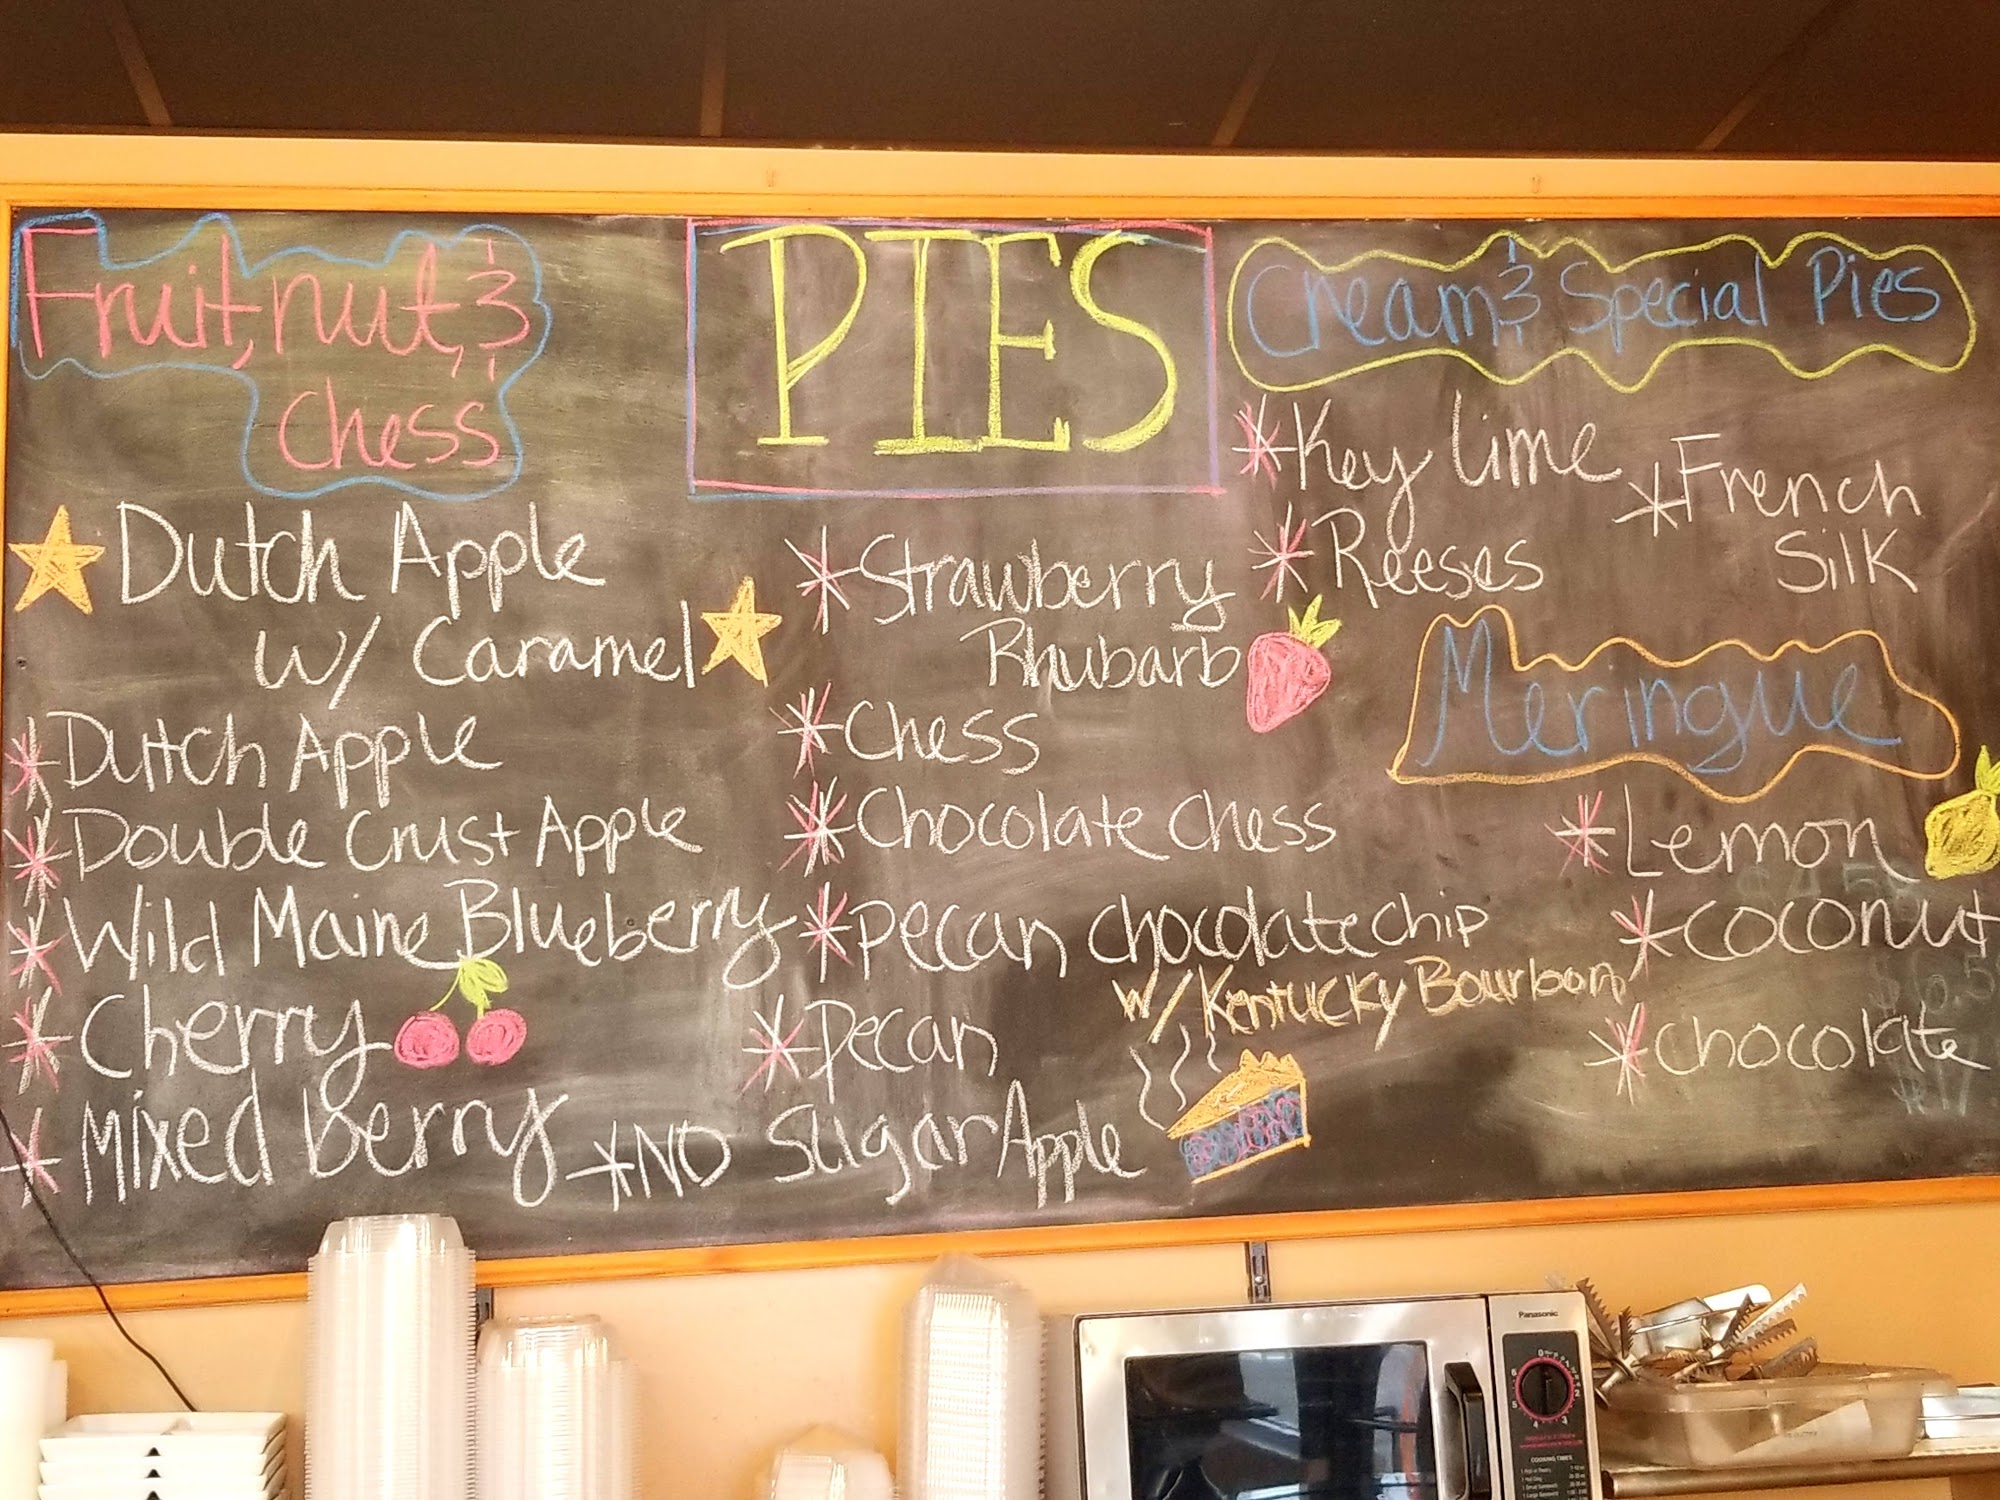 PIES
Fruit, nut, &
Chess
Dutch Apple
w/ Caramel
Dutch Apple
Double Crust Apple
Wild Maine Blueberry
Cherry
Mixed berry
Strawberry
Rhubarb
Chess
Chocolate Chess
Pecan chocolate chip
w/ Kentucky Bourbon
Pecan
NO Sugar Apple
Cream & Special Pies
Key lime
Reeses
French
Silk
Meringue
Lemon
Coconut
Chocolate
Panasonic
COOKING TIMES